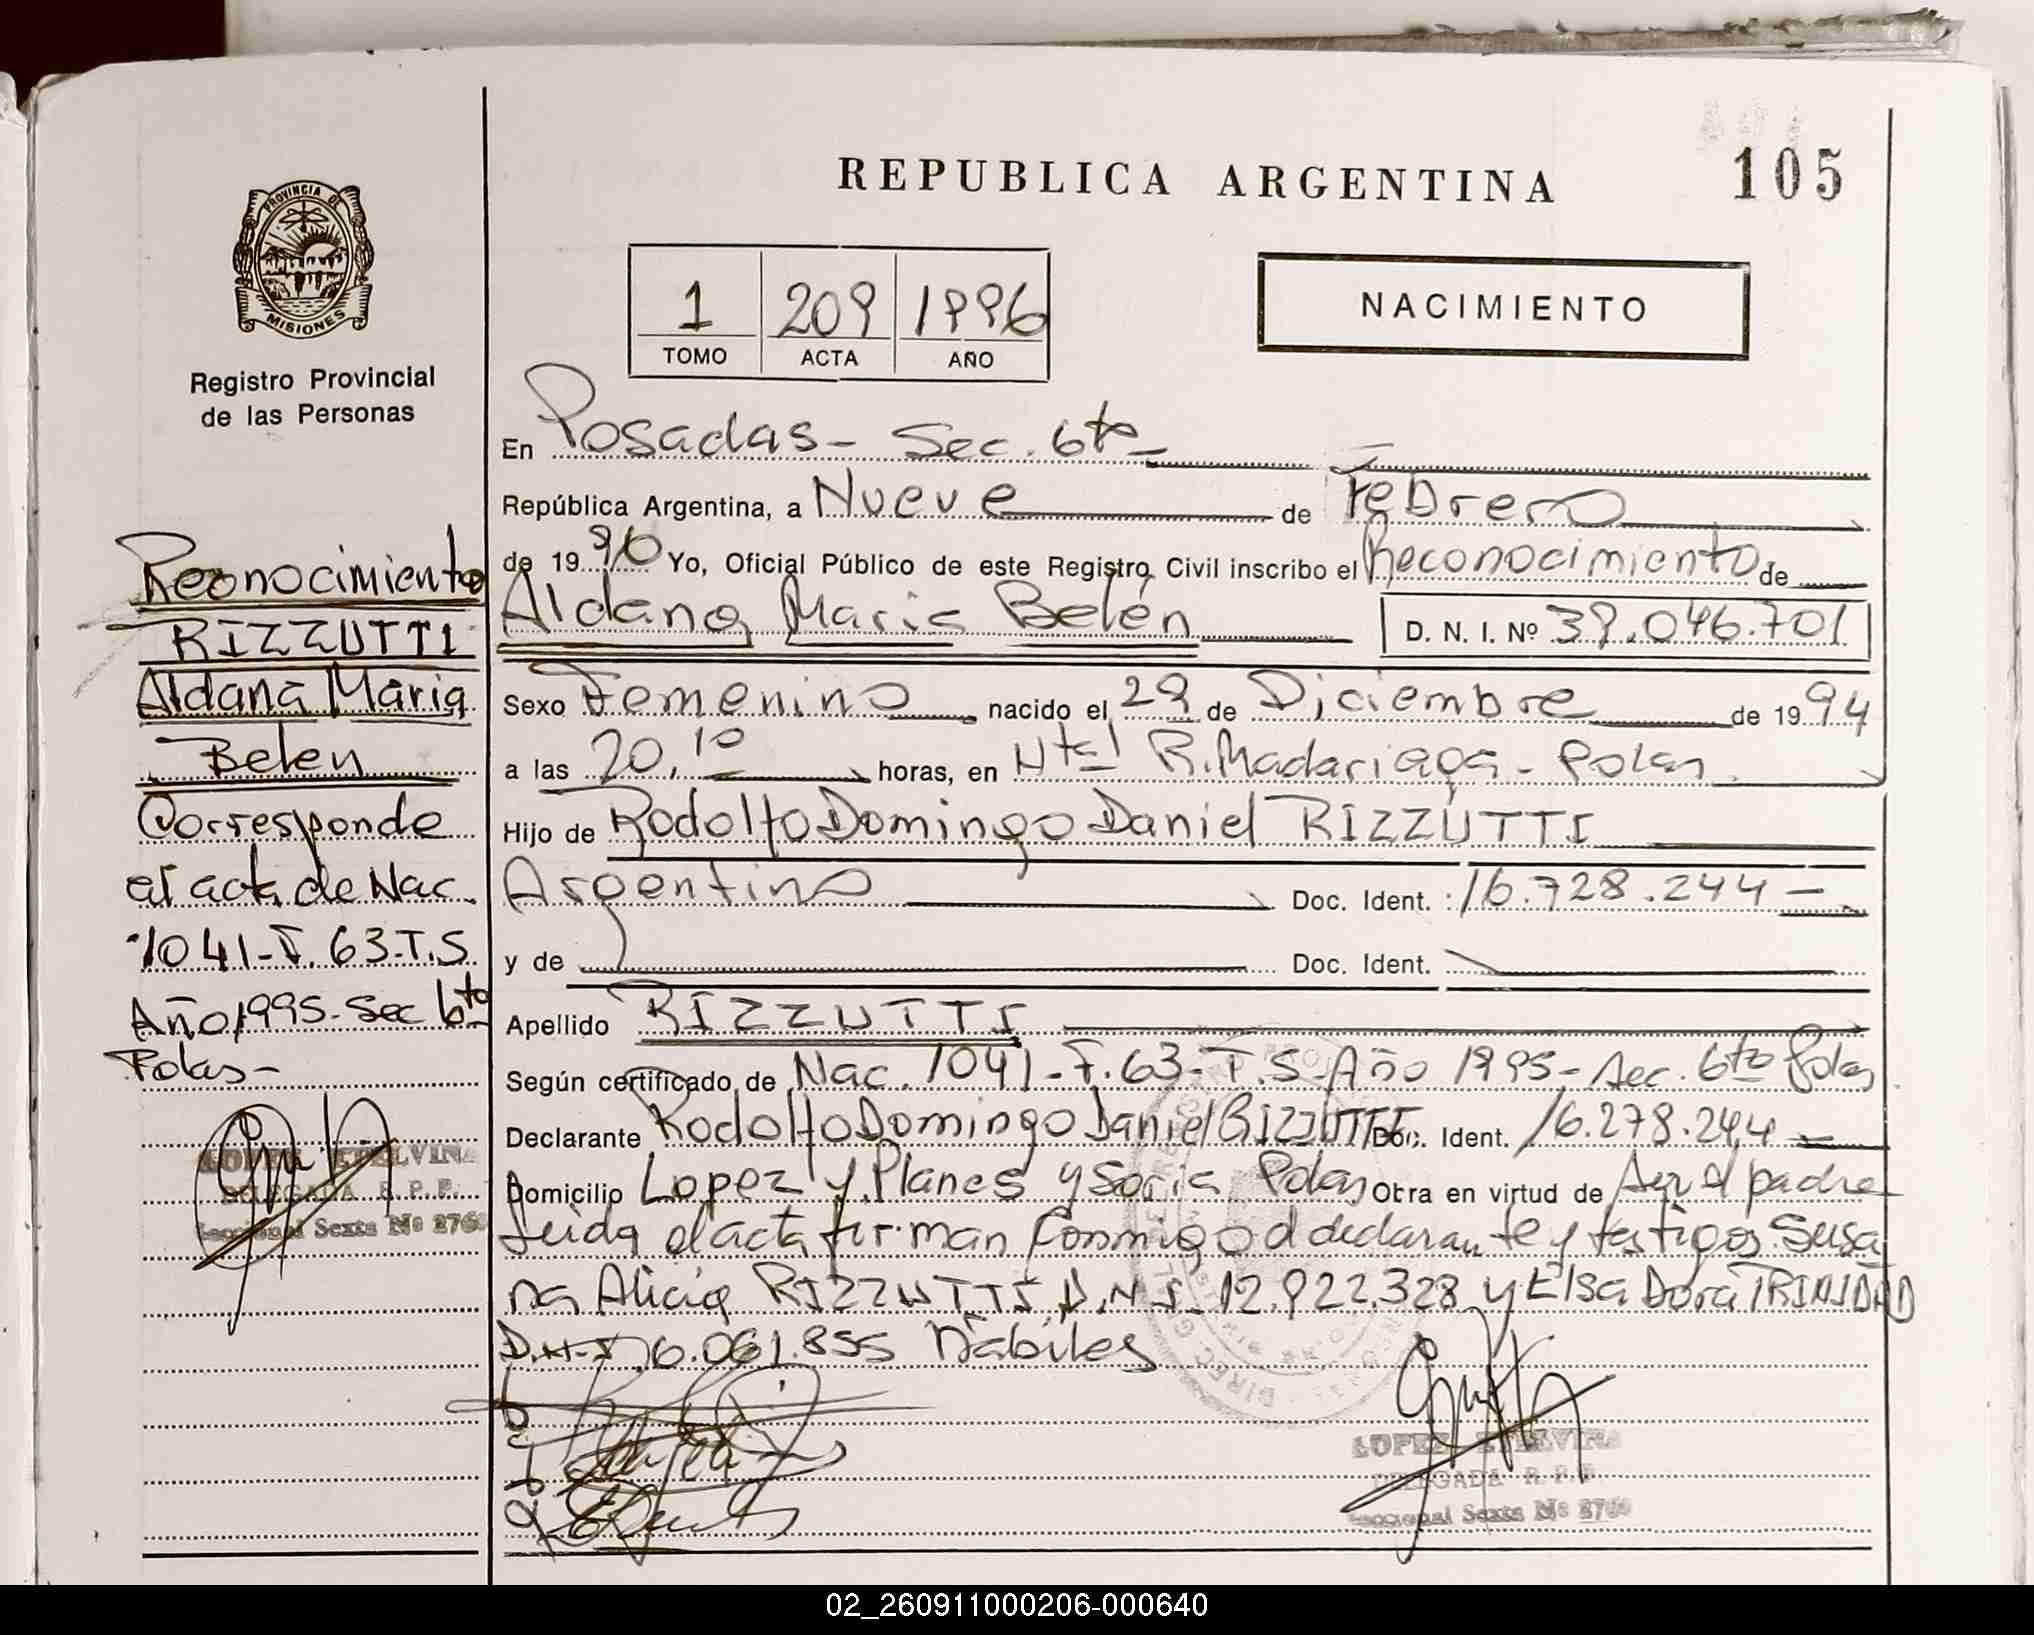 REPUBLICA ARGENTINA
105
PROVINCIA DE
MISIONES
Registro Provincial
de las Personas
1 209 1996
TOMO ACTA AÑO
NACIMIENTO
En Posadas - Sec. 6ta -
República Argentina, a Nueve de Febrero
de 1996 Yo, Oficial Público de este Registro Civil inscribo el Reconocimiento de
Aldana Maria Belén D. N. I. Nº 39.046.701
Sexo Femenino nacido el 29 de Diciembre de 1994
a las 20,10 horas, en Htal R. Madariaga - Pdas
Hijo de Rodolfo Domingo Daniel RIZZUTTI
Argentino Doc. Ident. : 16.728.244 -
y de Doc. Ident.
Apellido RIZZUTTI
Según certificado de Nac. 1041 - F. 63 - T. 5 - Año 1995 - Sec. 6ta Pdas
Declarante Rodolfo Domingo Daniel RIZZUTTI Doc. Ident. 16.278.244 -
Domicilio Lopez y Planes y Soria Pdas Obra en virtud de Ser el padre
Leida el acta firman conmigo el declarante y testigos Susa
na Alicia RIZZUTTI D.N.I. 12.922.328 y Elsa Dora TRINIDAD
D.N.I. 6.061.855 Hábiles
Reonocimiento
RIZZUTTI
Aldana Maria
Belen
Corresponde
al acta de Nac.
1041 - F. 63 - T. 5
Año 1995 - Sec 6ta
Pdas -
LOPEZ ETELVINA
DELEGADA R. P. P.
Seccional Sexta Nº 2760
LOPEZ ETELVINA
DELEGADA R. P. P.
Seccional Sexta Nº 2760
02_260911000206-000640